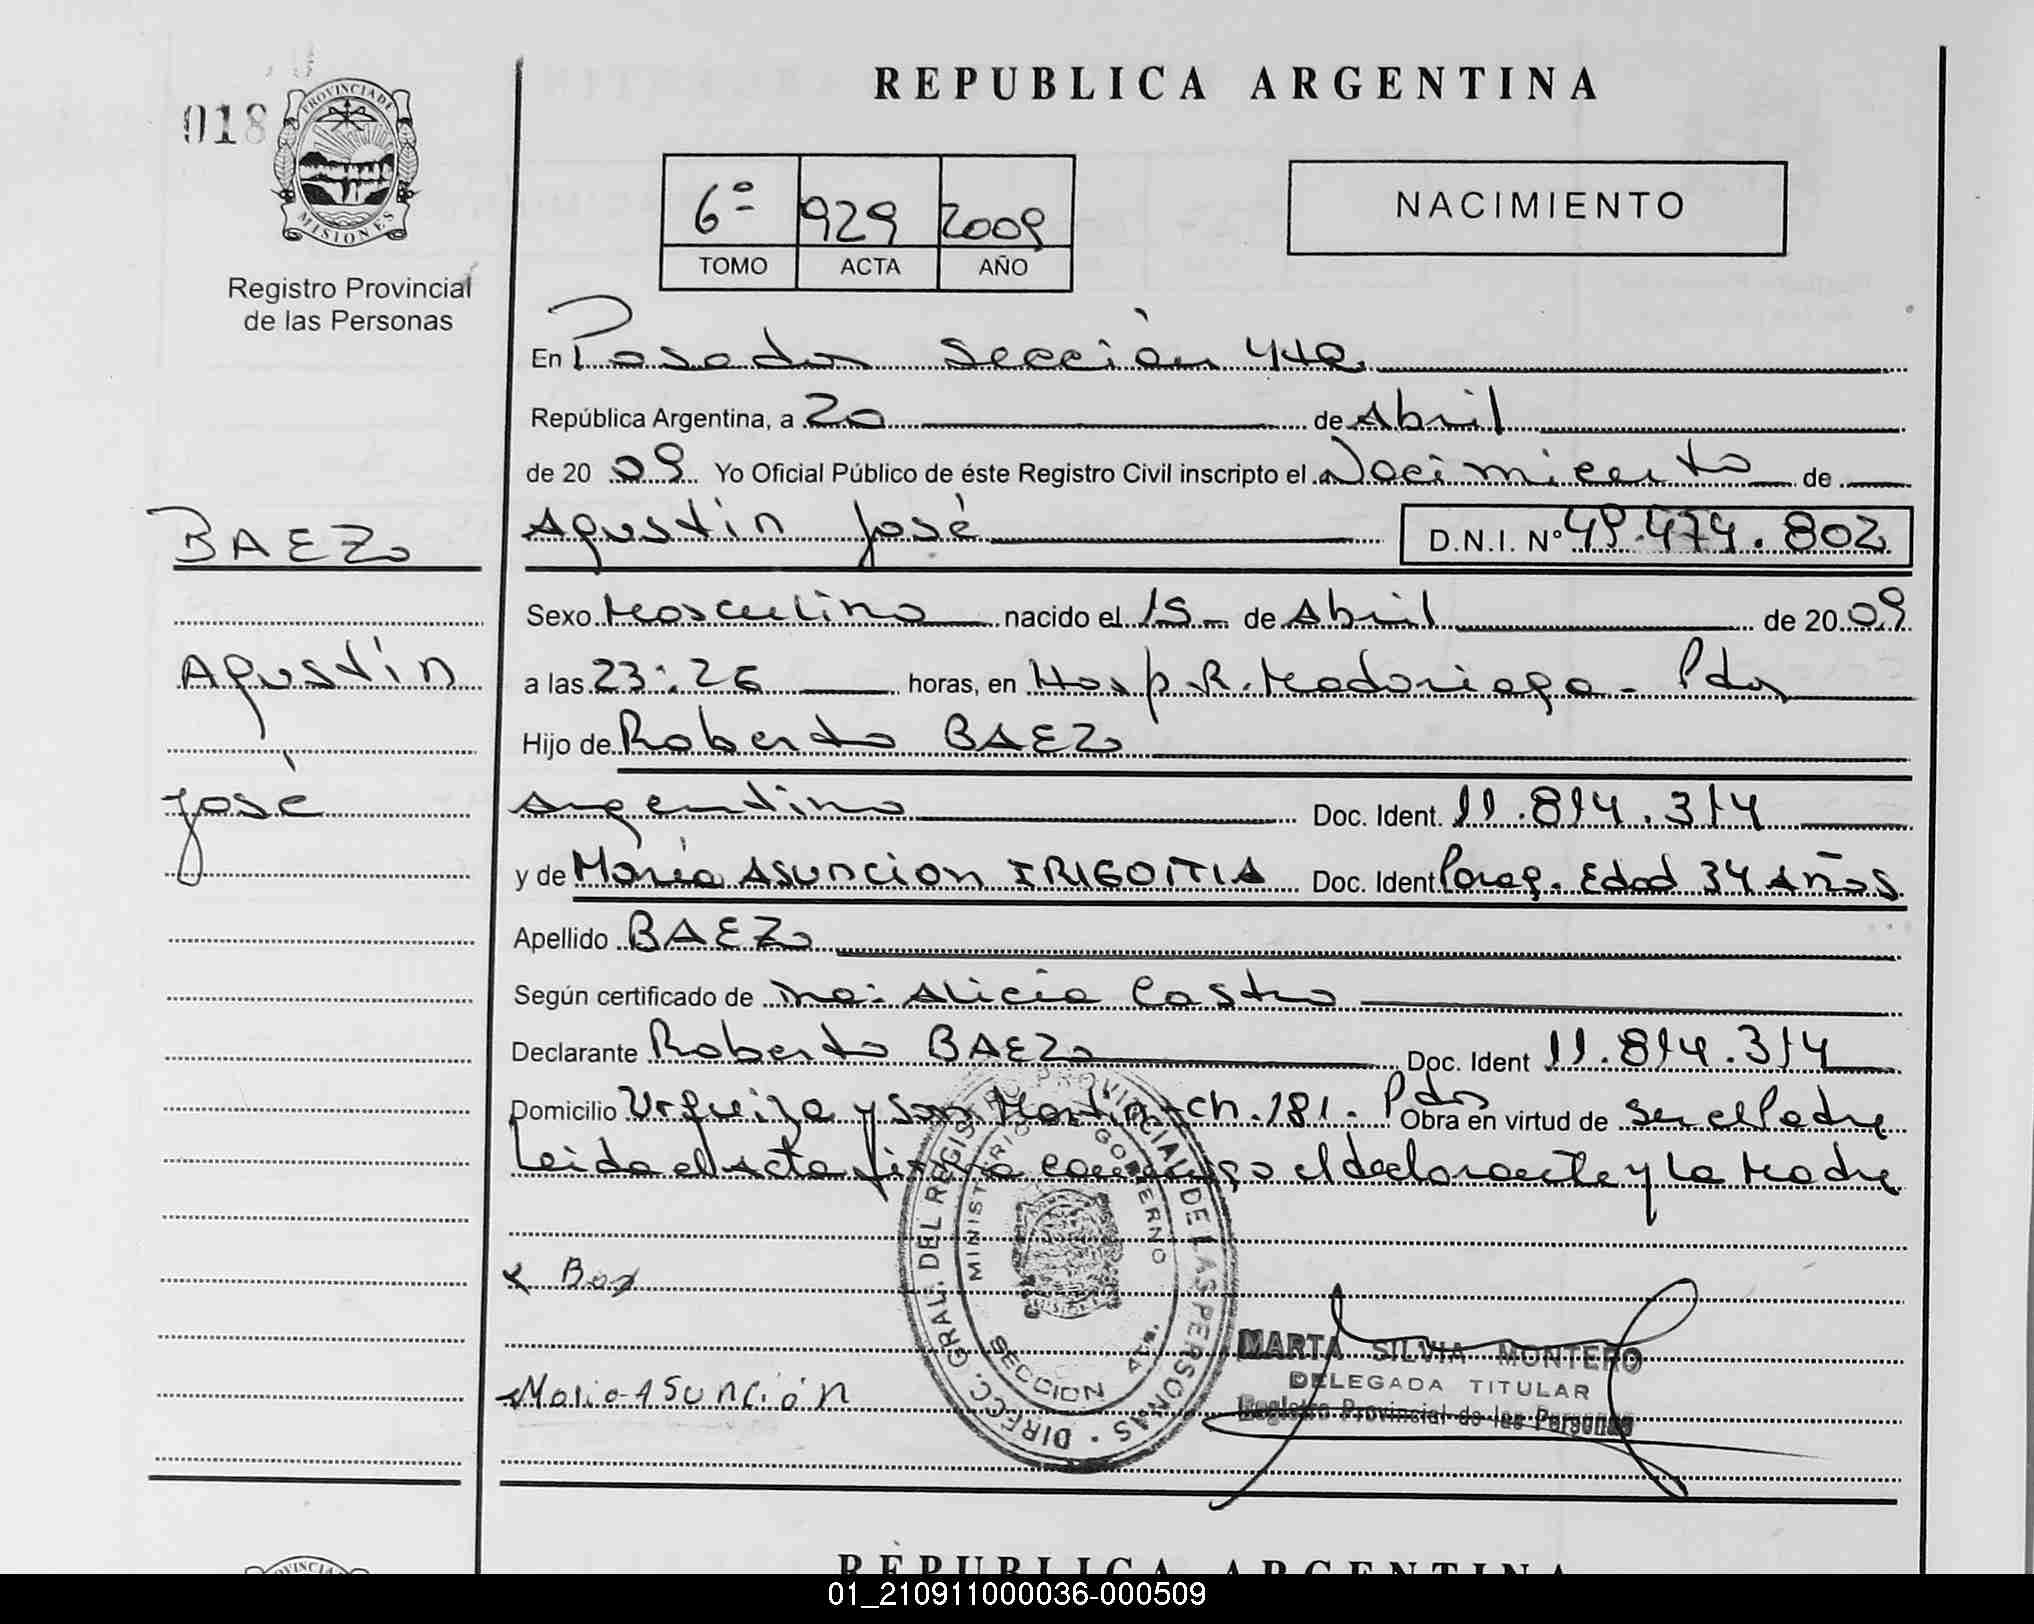 018
PROVINCIA DE
MISIONES
Registro Provincial
de las Personas
REPUBLICA ARGENTINA
6º 929 2009
TOMO ACTA AÑO
NACIMIENTO
En Posadas Sección 4ta
República Argentina, a 20 de Abril
de 20 09 Yo Oficial Público de éste Registro Civil inscripto el Nacimiento de
BAEZ
Agustín José D.N.I. Nº 49.474.802
Sexo Masculino nacido el 15 de Abril de 20 09
Agustín
a las 23:26 horas, en Hosp R. Madariaga - Pdas
Hijo de Roberto BAEZ
José
Argentino Doc. Ident. 11.814.314
y de María Asuncion IRIGOITIA Doc. Ident Parag. Edad 34 Años
Apellido BAEZ
Según certificado de Ma: Alicia Castro
Declarante Roberto BAEZ Doc. Ident 11.814.314
Domicilio Urquiza y San Martin ch. 181. Pdas Obra en virtud de ser el Padre
Leida el Acta firma conmigo el declarante y La Madre
DIRECC. GRAL. DEL REGISTRO PROVINCIAL DE LAS PERSONAS
MINISTERIO GOBIERNO
SECCION 4ta.
MARTA SILVIA MONTERO
DELEGADA TITULAR
Registro Provincial de las Personas
Maria Asunción
REPUBLICA ARGENTINA
01_210911000036-000509